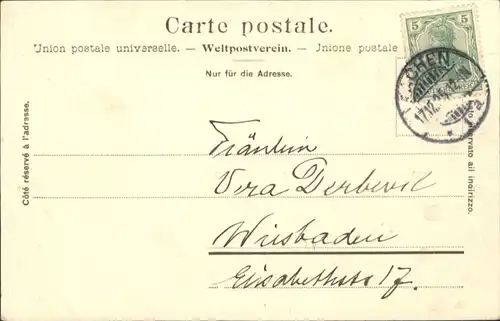 Carte postale.
5 5
Union postale universelle. — Weltpostverein. — Unione postale
Nur für die Adresse.
17.12.
Côté réservé à l'adresse.
ail indirizzo.
Fräulein
Vera Derbevil
Wiesbaden
Elisabethstr 17.